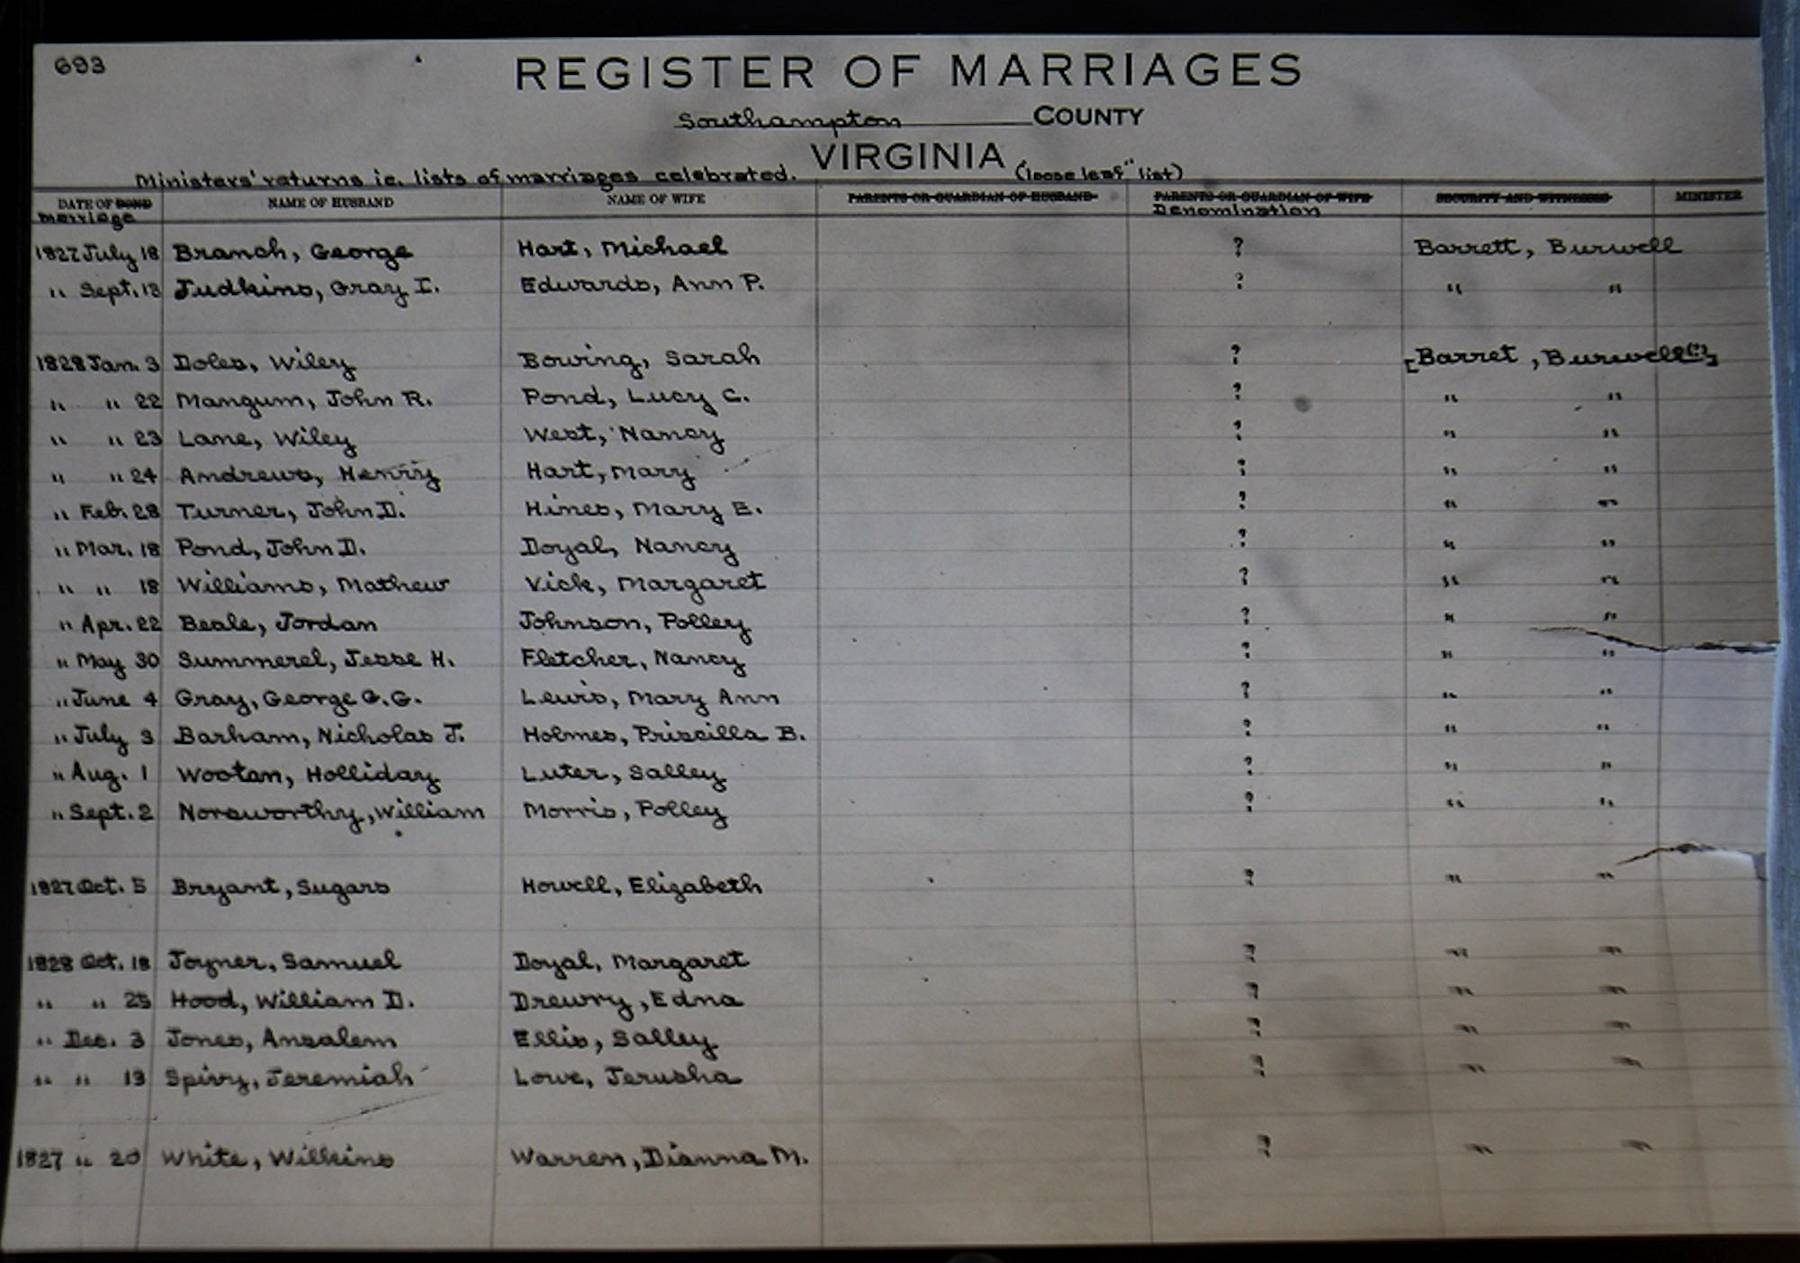 693
REGISTER OF MARRIAGES
Southampton COUNTY
VIRGINIA
Ministers' returns ie. lists of marriages celebrated. ("loose leaf" list)
DATE OF BOND NAME OF HUSBAND NAME OF WIFE PARENTS OR GUARDIAN OF HUSBAND PARENTS OR GUARDIAN OF WIFE SECURITY AND WITNESSES MINISTER
Marriage Denomination
1827 July 18 Branch, George Hart, Michael ? Barrett, Burwell
" Sept. 13 Judkins, Gray I. Edwards, Ann P. ? " "
1828 Jan. 3 Doles, Wiley Bowing, Sarah ? [Barret, Burwell(?)]
" " 22 Mangum, John R. Pond, Lucy C. ? " "
" " 23 Lane, Wiley West, Nancy ? " "
" " 24 Andrews, Henry Hart, Mary ? " "
" Feb. 28 Turner, John D. Hines, Mary E. ? " "
" Mar. 18 Pond, John D. Doyal, Nancy ? " "
" " 18 Williams, Mathew Vick, Margaret ? " "
" Apr. 22 Beale, Jordan Johnson, Polley ? " "
" May 30 Summerel, Jesse H. Fletcher, Nancy ? " "
" June 4 Gray, George G. G. Lewis, Mary Ann ? " "
" July 3 Barham, Nicholas J. Holmes, Priscilla B. ? " "
" Aug. 1 Wootan, Holliday Luter, Salley ? " "
" Sept. 2 Norsworthy, William Morris, Polley ? " "
1827 Oct. 5 Bryant, Sugars Howell, Elizabeth ? " "
1828 Oct. 18 Joyner, Samuel Doyal, Margaret ? " "
" " 25 Hood, William D. Drewry, Edna ? " "
" Dec. 3 Jones, Ansalem Ellis, Salley ? " "
" " 13 Spivy, Jeremiah Lowe, Jerusha ? " "
1827 " 20 White, Wilkins Warren, Dianna M. ? " "